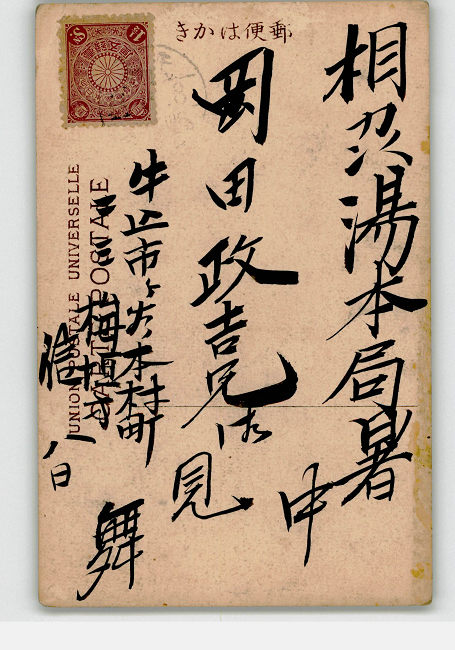 郵便はかき
UNION POSTALE UNIVERSELLE
CARTE POSTALE
相刕湯本局
岡田政吉兄
暑中
御見舞
牛込市ヶ谷本村町
梅垣
八日